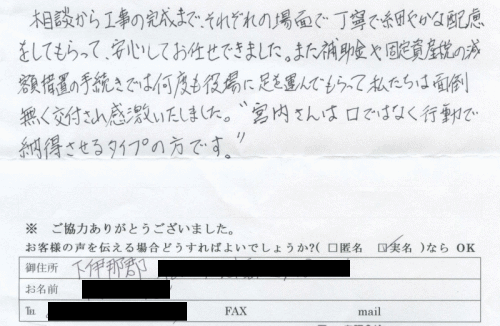 相談から工事の完成まで、それぞれの場面で丁寧で細やかな配慮
をしてもらって、安心してお任せできました。また補助金や固定資産税の減
額措置の手続きでは何度も役場に足を運んでもらって私たちは面倒
無く交付され感激いたしました。“宮内さんは口ではなく行動で
納得させるタイプの方です。”
※ ご協力ありがとうございました。
お客様の声を伝える場合どうすればよいでしょうか?(□匿名 ☑実名)なら OK
御住所 下伊那郡
お名前
℡ FAX mail